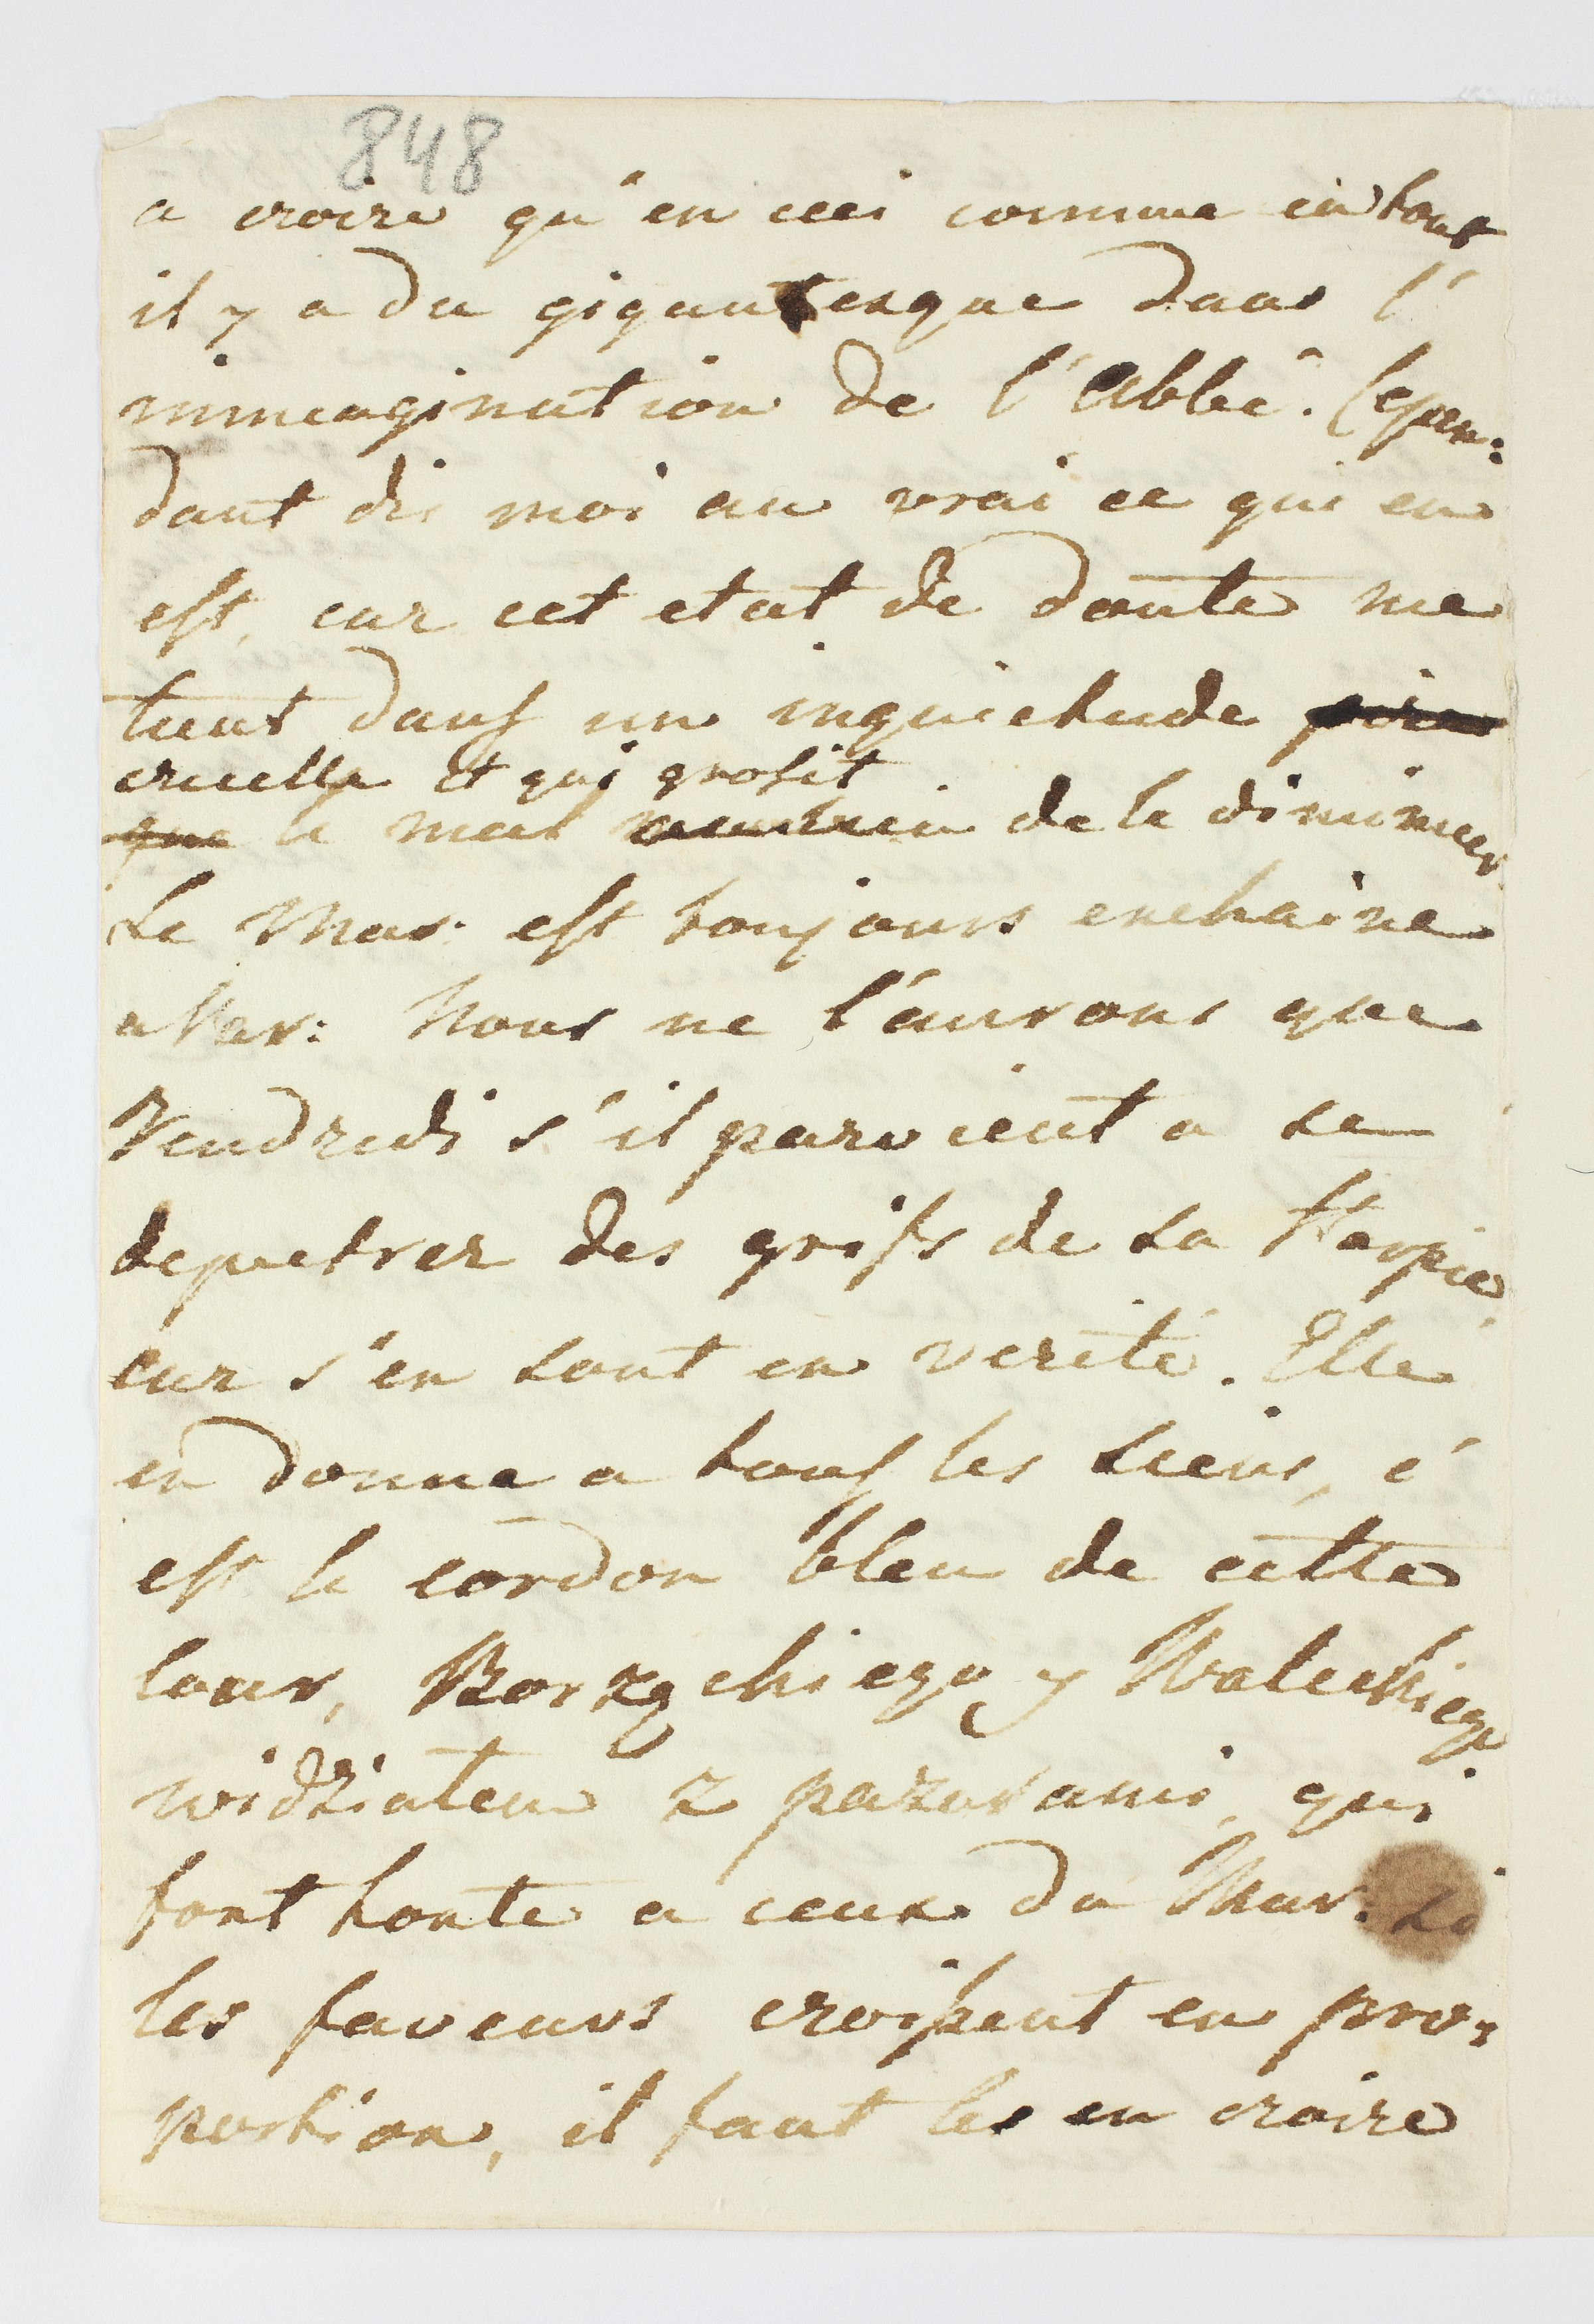 848
a croire qu'en ceci comme en tout
il y a du gigantesque dans l'
immagination de l'Abbé. Cepen:
dant dis moi au vrai ce qui en
est, car cet etat de doute me
tient dans un inquietude
cruelle et qui grossit
que le mal de le diminuer
Le Mar: est toujours enchainé
a Var: Nous ne l'aurons que
Vendredi s'il parvient a se
depetrer des grifs de La Harpie
car s'en sont en verité. Elle
en donne a tous les siens, c'
est le cordon bleu de cette
cour, y Walewskiego
widziałem z pazurami, qui
font honte a ceux du Mar: Si
les faveurs croissent en pro:
portion, il faut les en croire